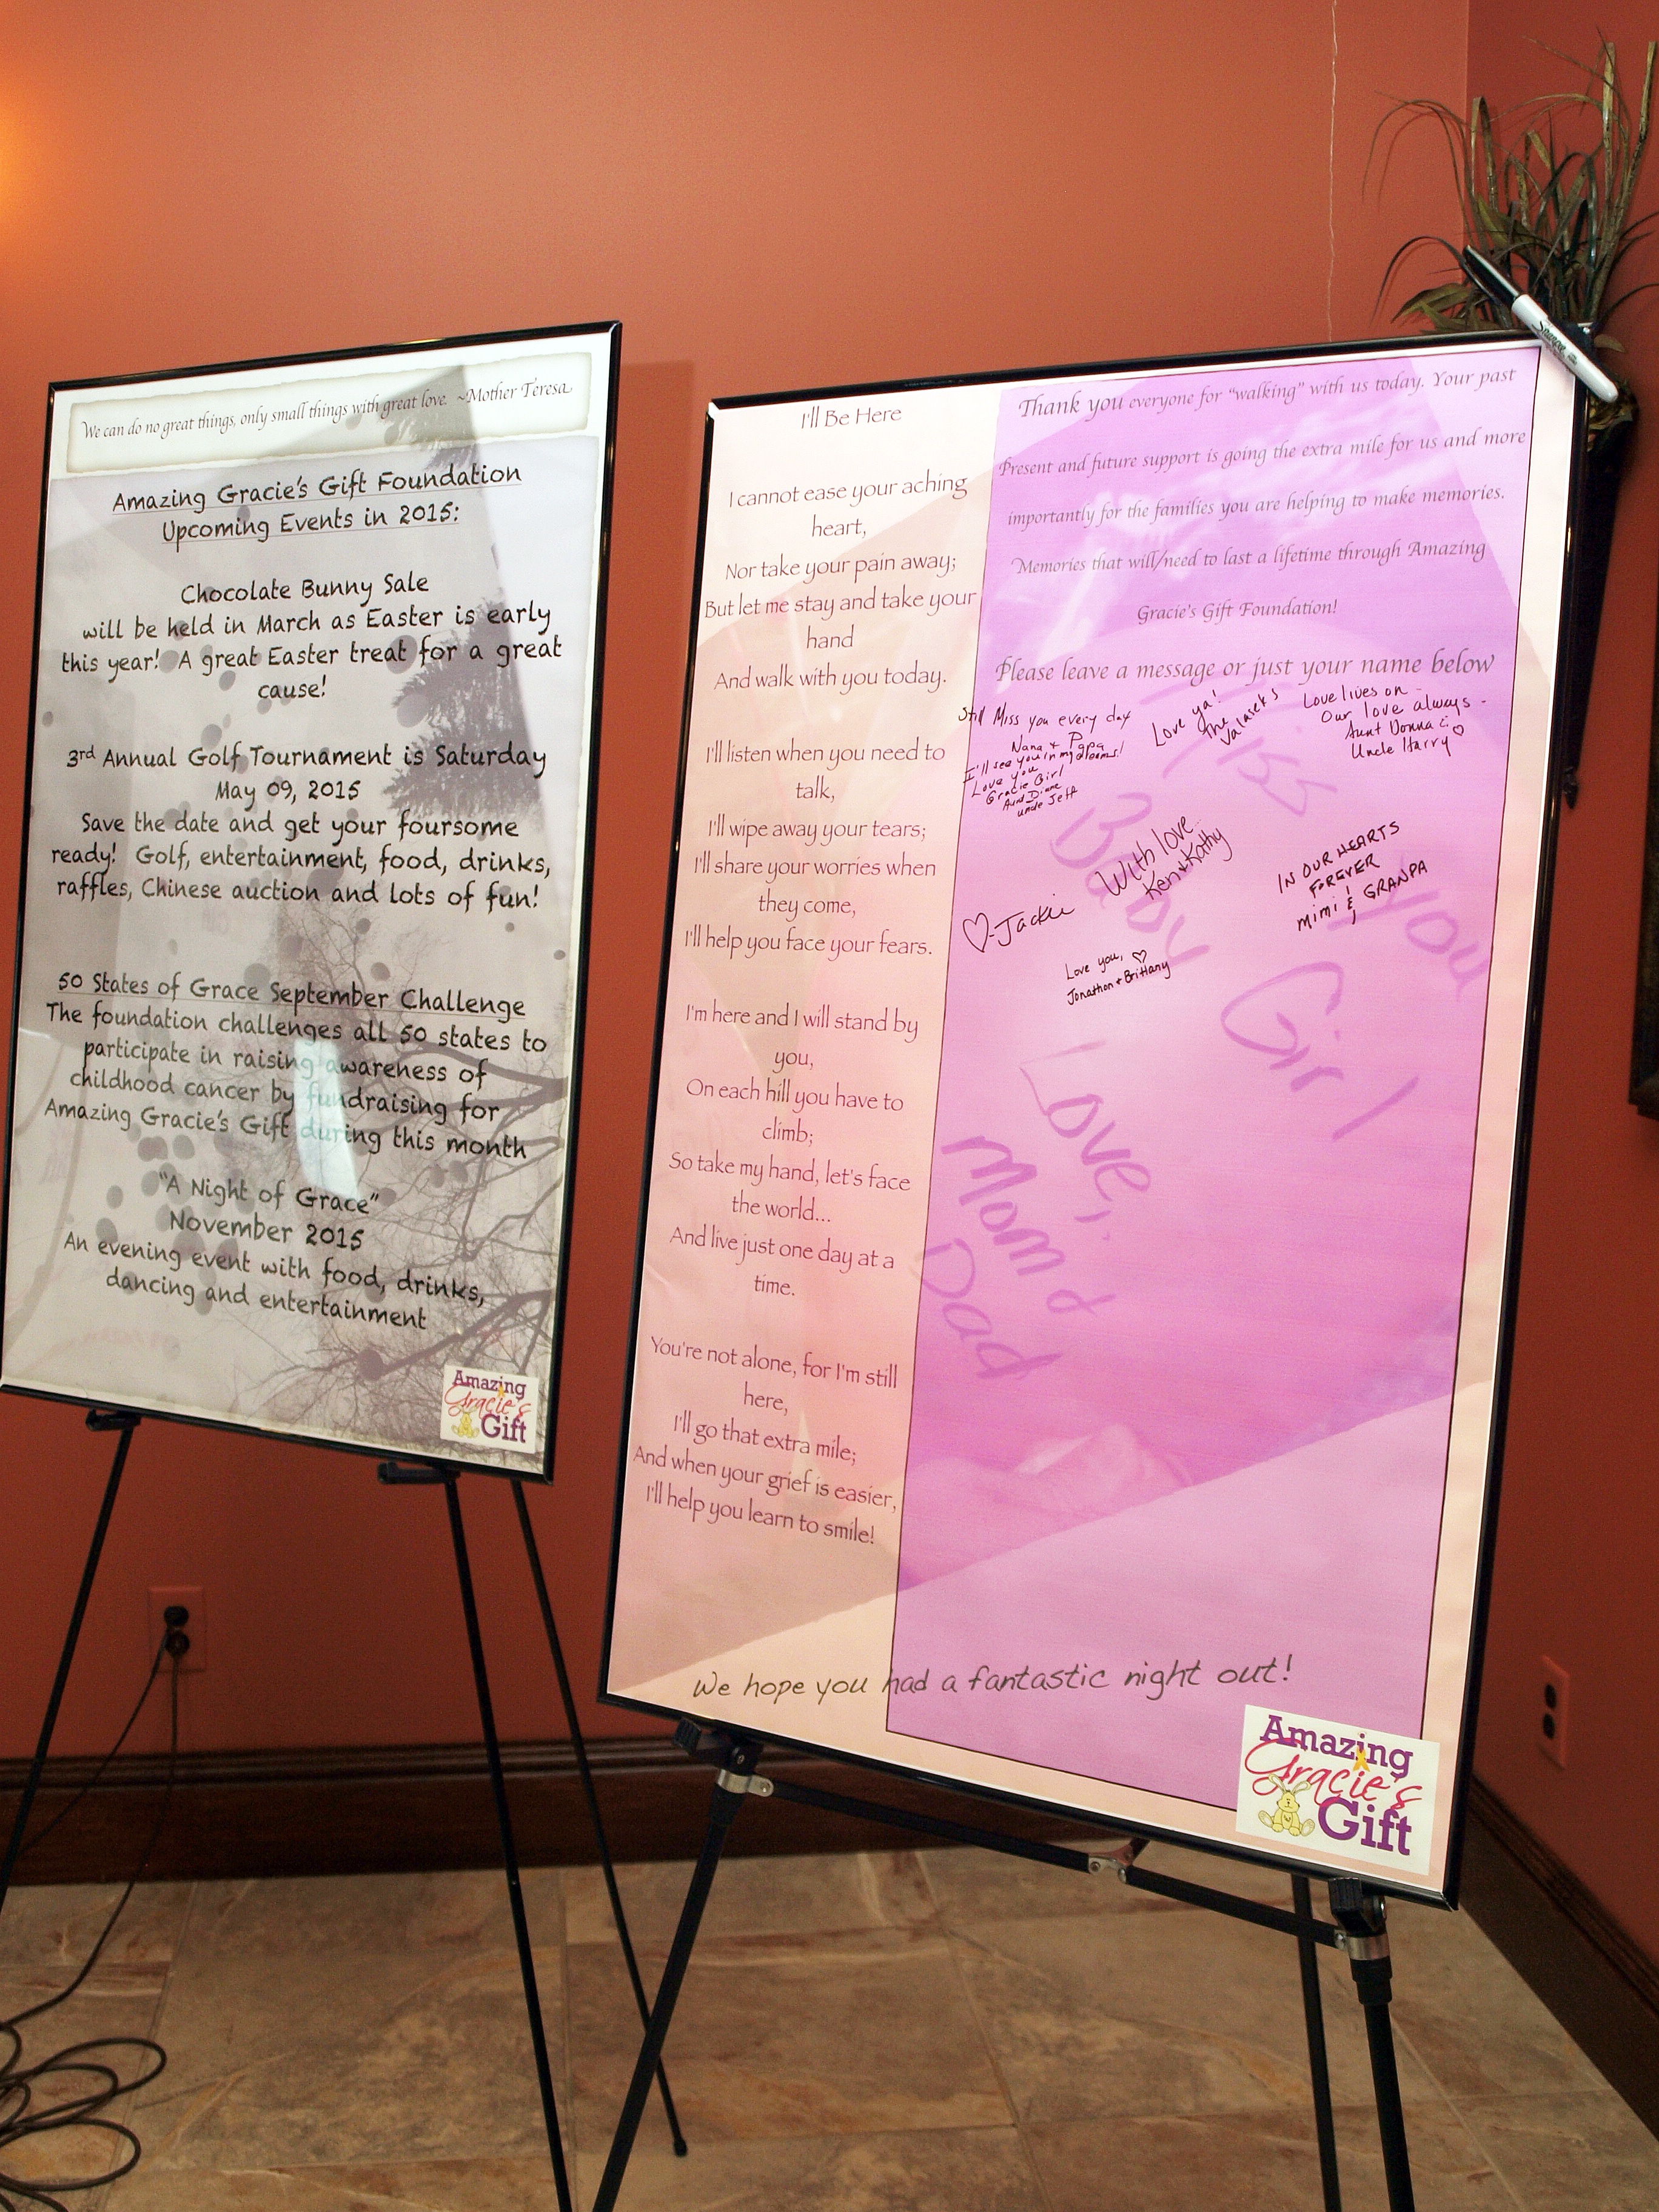 We can do no great things, only small things with great love. ~Mother Teresa
Amazing Gracie's Gift Foundation
Upcoming Events in 2015:
Chocolate Bunny Sale
will be held in March as Easter is early
this year! A great Easter treat for a great
cause!
3rd Annual Golf Tournament is Saturday
May 09, 2015
Save the date and get your foursome
ready! Golf, entertainment, food, drinks,
raffles, Chinese auction and lots of fun!
50 States of Grace September Challenge
The foundation challenges all 50 states to
participate in raising awareness of
childhood cancer by fundraising for
Amazing Gracie's Gift during this month
"A Night of Grace"
November 2015
An evening event with food, drinks,
dancing and entertainment
Amazing
Gracie's
Gift
I'll Be Here
I cannot ease your aching
heart,
Nor take your pain away;
But let me stay and take your
hand
And walk with you today.
I'll listen when you need to
talk,
I'll wipe away your tears;
I'll share your worries when
they come,
I'll help you face your fears.
I'm here and I will stand by
you,
On each hill you have to
climb;
So take my hand, let's face
the world...
And live just one day at a
time.
You're not alone, for I'm still
here,
I'll go that extra mile;
And when your grief is easier,
I'll help you learn to smile!
Thank you everyone for "walking" with us today. Your past
Present and future support is going the extra mile for us and more
importantly for the families you are helping to make memories.
Memories that will/need to last a lifetime through Amazing
Gracie's Gift Foundation!
Please leave a message or just your name below
Still Miss you every day
Nana & Papa
I'll see you in my dreams!
Love you
Gracie Girl
Aunt Diane
Uncle Jeff
Love ya!
The
Valasek's
Love lives on -
Our love always -
Aunt Donna &
Uncle Harry ♡
With love...
Ken & Kathy
IN OUR HEARTS
FOREVER
mimi & GRANPA
♡-Jackie
Love you, ♡
Jonathon & Brittany
Miss you
Baby Girl
Love,
Mom &
Dad
We hope you had a fantastic night out!
Amazing
Gracie's
Gift
Sharpie